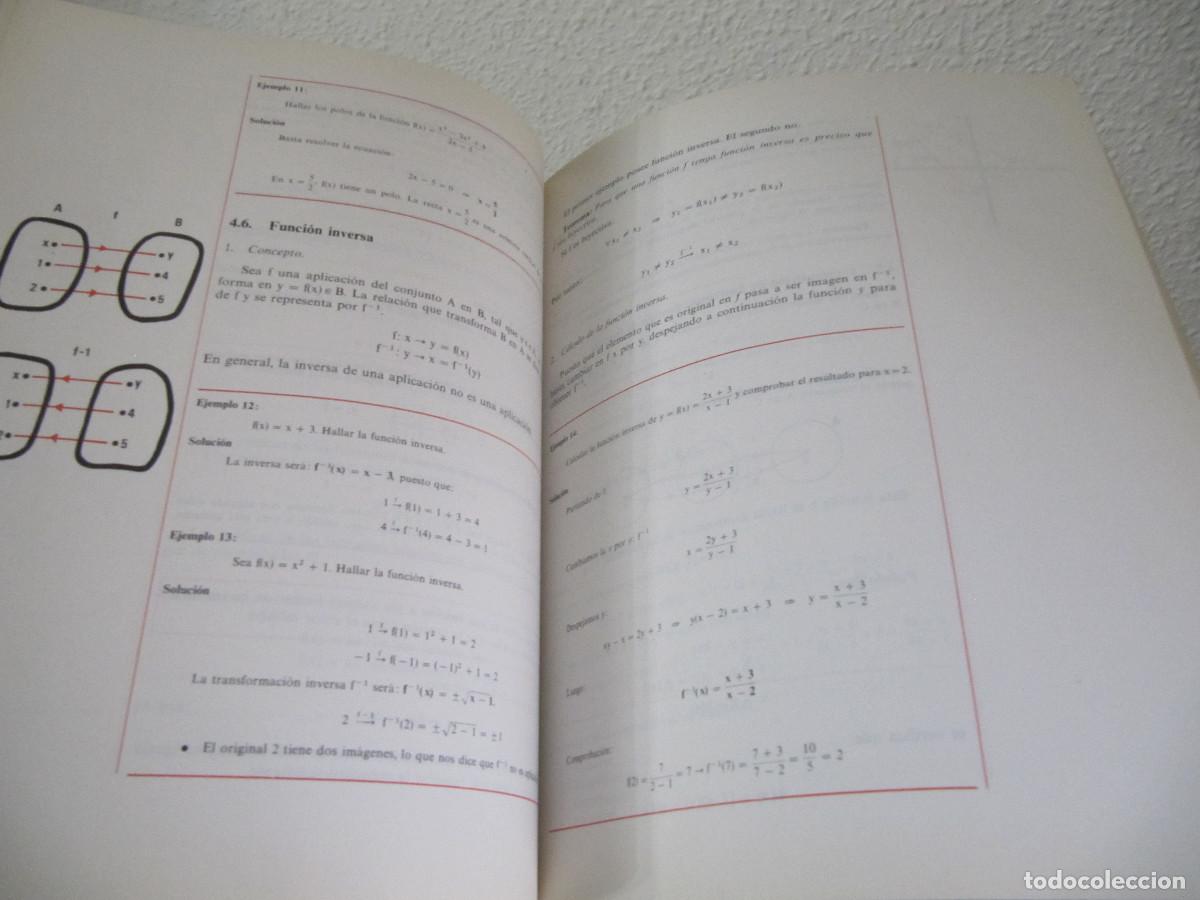 A f B
x y
1 4
2 5
f-1
x y
1 4
2 5
Ejemplo 11:
Hallar los polos de la función f(x) =
Solución
Basta resolver la ecuación.
2x − 5 = 0 ⇒ x = 5/2
En x = 5/2, f(x) tiene un polo. La recta x = 5/2 es una
4.6. Función inversa
1. Concepto.
Sea f una aplicación del conjunto A en B, tal que
forma en y = f(x) ∈ B. La relación que transforma B en A
de f y se representa por f⁻¹.
f: x → y = f(x)
f⁻¹: y → x = f⁻¹(y)
En general, la inversa de una aplicación no es una aplicación
Ejemplo 12:
f(x) = x + 3. Hallar la función inversa.
Solución
La inversa será: f⁻¹(x) = x − 3, puesto que:
1 →f f(1) = 1 + 3 = 4
4 → f⁻¹(4) = 4 − 3 = 1
Ejemplo 13:
Sea f(x) = x² + 1. Hallar la función inversa.
Solución
1 →f f(1) = 1² + 1 = 2
−1 →f f(−1) = (−1)² + 1 = 2
La transformación inversa f⁻¹ será: f⁻¹(x) = ±√x − 1.
2 →f−1 f⁻¹(2) = ±√2 − 1 = ±1
• El original 2 tiene dos imágenes, lo que nos dice que f⁻¹ no es
El primer ejemplo posee función inversa. El segundo no.
Teorema: Para que una función f tenga función inversa es preciso que
f sea biyectiva.
Si f es biyectiva:
∀x₁ ≠ x₂ ⇒ y₁ = f(x₁) ≠ y₂ = f(x₂)
Por tanto:
y₁ ≠ y₂ →f⁻¹ x₁ ≠ x₂
2. Cálculo de la función inversa.
Puesto que el elemento que es original en f pasa a ser imagen en f⁻¹,
basta cambiar en f x por y, despejando a continuación la función y para
obtener f⁻¹.
Ejemplo 14:
Calcular la función inversa de y = f(x) = (2x + 3)/(x − 1) y comprobar el resultado para x = 2.
Solución
Partiendo de f:
y = (2x + 3)/(y − 1)
Cambiamos la x por y: f⁻¹
x = (2y + 3)/(y − 1)
Despejamos y:
xy − x = 2y + 3 ⇒ y(x − 2) = x + 3 ⇒ y = (x + 3)/(x − 2)
Luego:
f⁻¹(x) = (x + 3)/(x − 2)
Comprobación:
f(2) = 7/(2 − 1) = 7 → f⁻¹(7) = (7 + 3)/(7 − 2) = 10/5 = 2
todocoleccion